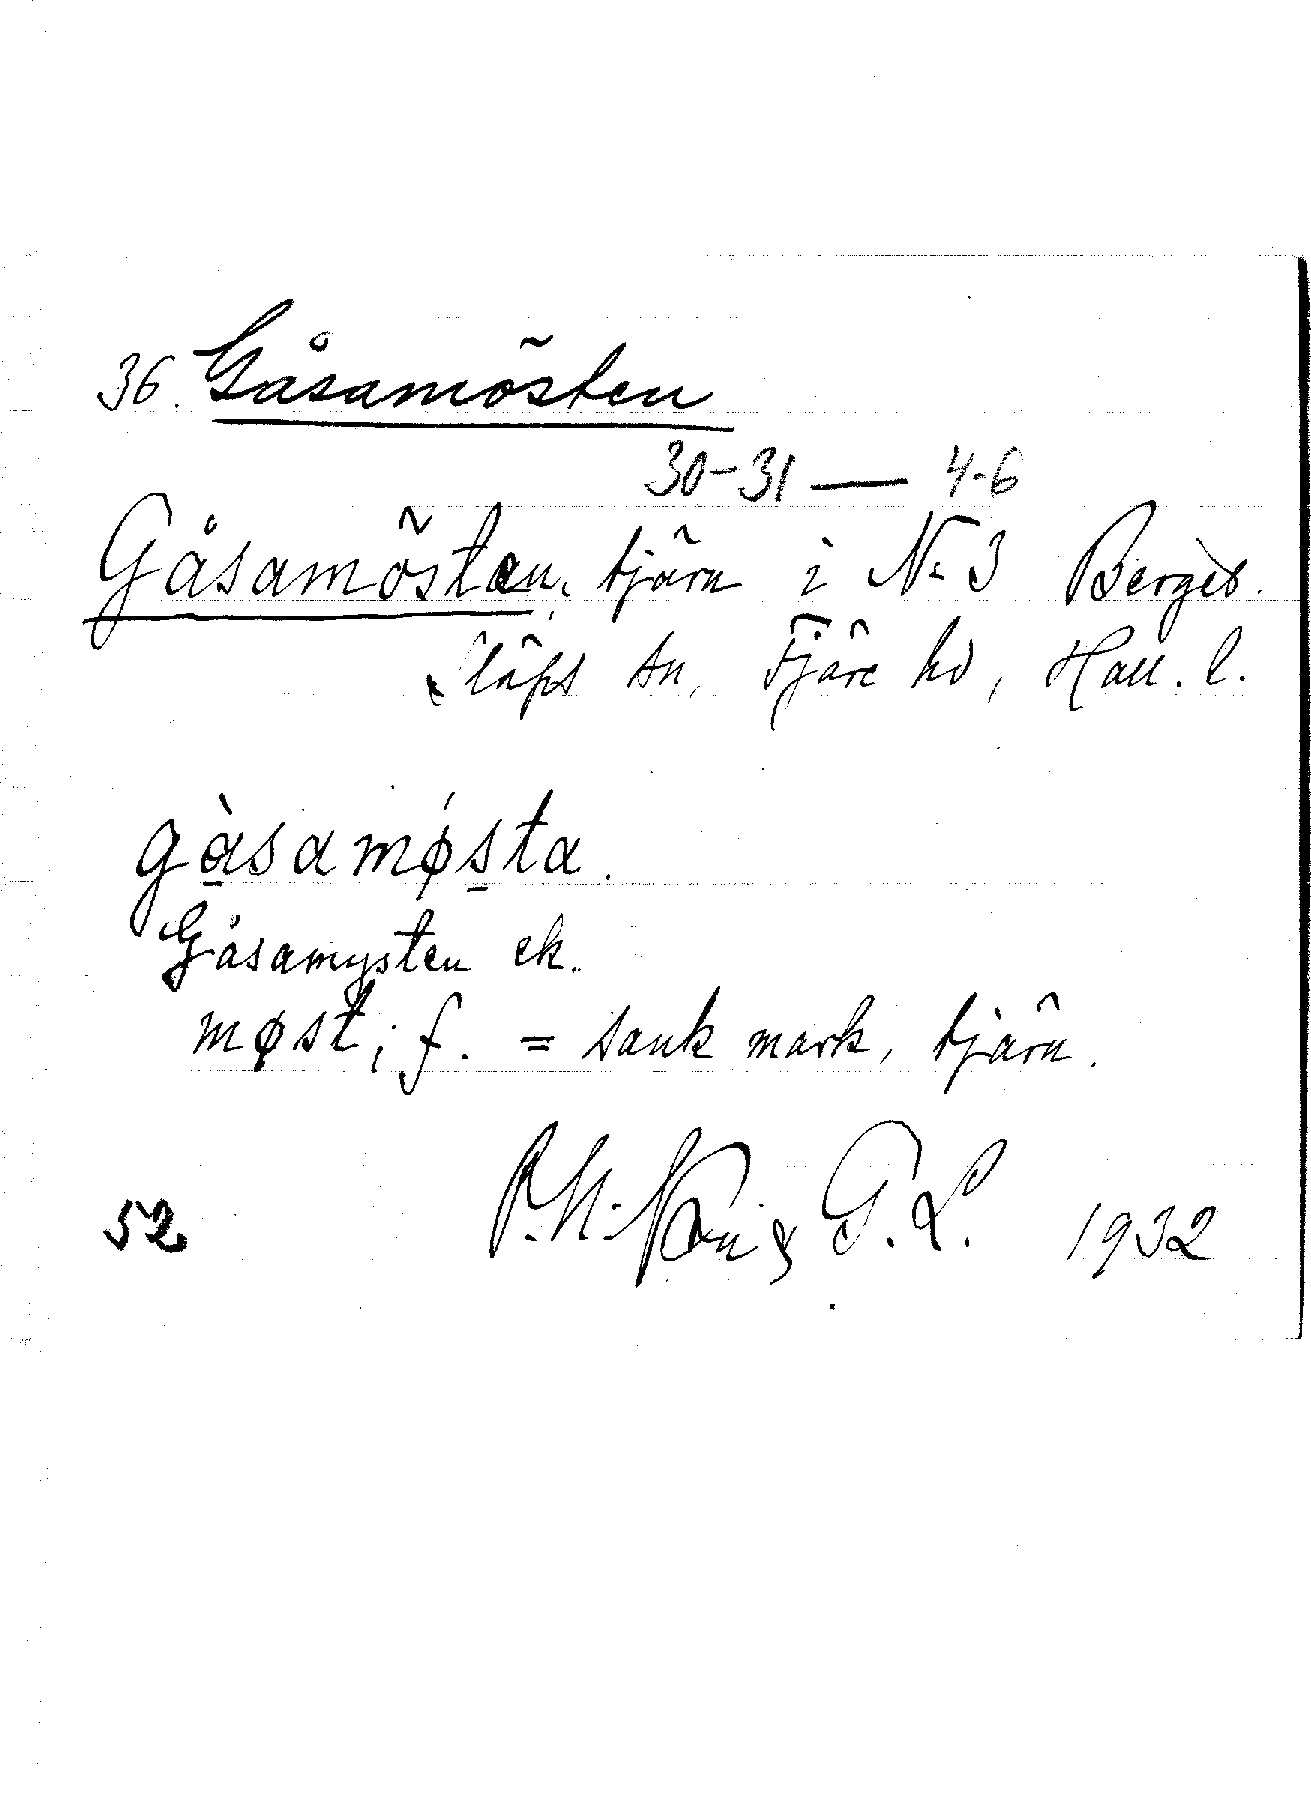 36. Gåsamösten
30-31 — 4-6
Gåsamösten, tjärn i No 3 Berget.
Släps sn, Fjäre hd, Hall. l.
gàsamǿsta.
Gåsamysten ek.
møst, f. = sank mark, tjärn.
52 & G. L. 1932